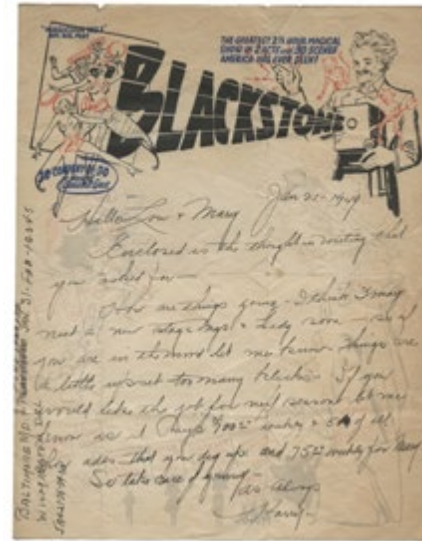 THE GREATEST 2½ HOUR MAGICAL
SHOW IN 2 ACTS and 30 SCENES
AMERICA HAS EVER SEEN!
BLACKSTONE
30 COMPANY OF 30
Jan 25 - 1949
Hello Lou & Mary
Enclosed is the thought in writing that
you asked for —
How are things going - I think I may
need a new stage mgr & lady soon - so if
you are in the mood let me know - Things are
a little upset too many
If you
would like the job for next season let me
know as it Pays $100 weekly & 5% of all
ades that you dig up and 75 weekly for Mary
So take care of yourself -
as always
Harry -
BALTIMORE MD
WILMINGTON DEL